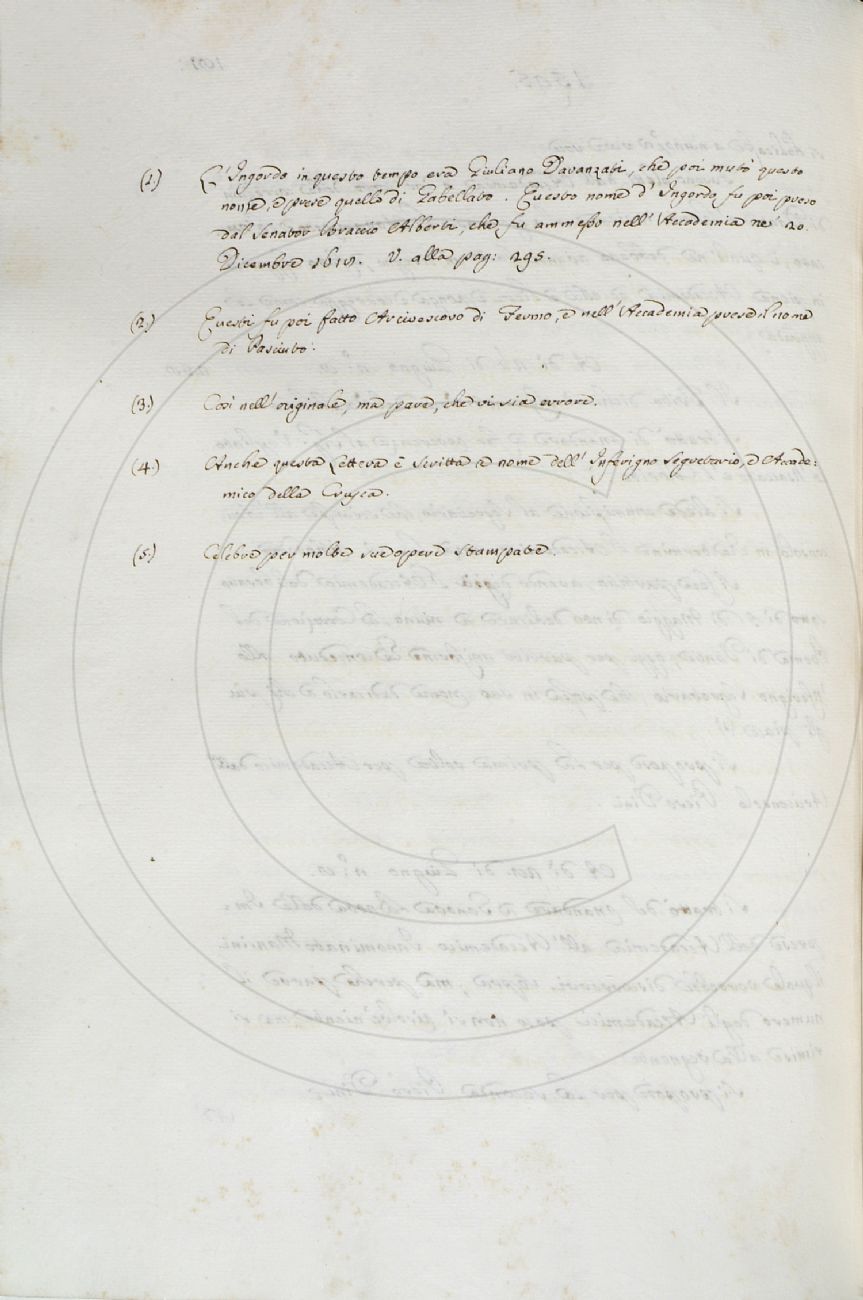 (1.) L'Ingordo in questo tempo era Giuliano Davanzati, che poi mutò questo
nome, e prese quello di Gabellato. Questo nome d'Ingordo fu poi preso
dal Senator Braccio Alberti, che fu ammesso nell'Accademia ne' 20.
Dicembre V. alla pag: 295.
(2.) Questi fu poi fatto Arcivescovo di Fermo, e nell'Accademia prese il nome
di Pasciuto.
(3.) Così nell'originale, ma pare, che vi sia errore.
(4.) Anche questa Lettera è scritta a nome dell'Inferigno Segretario, e Accade:
mico della Crusca.
(5.) Celebre per molte sue opere stampate.